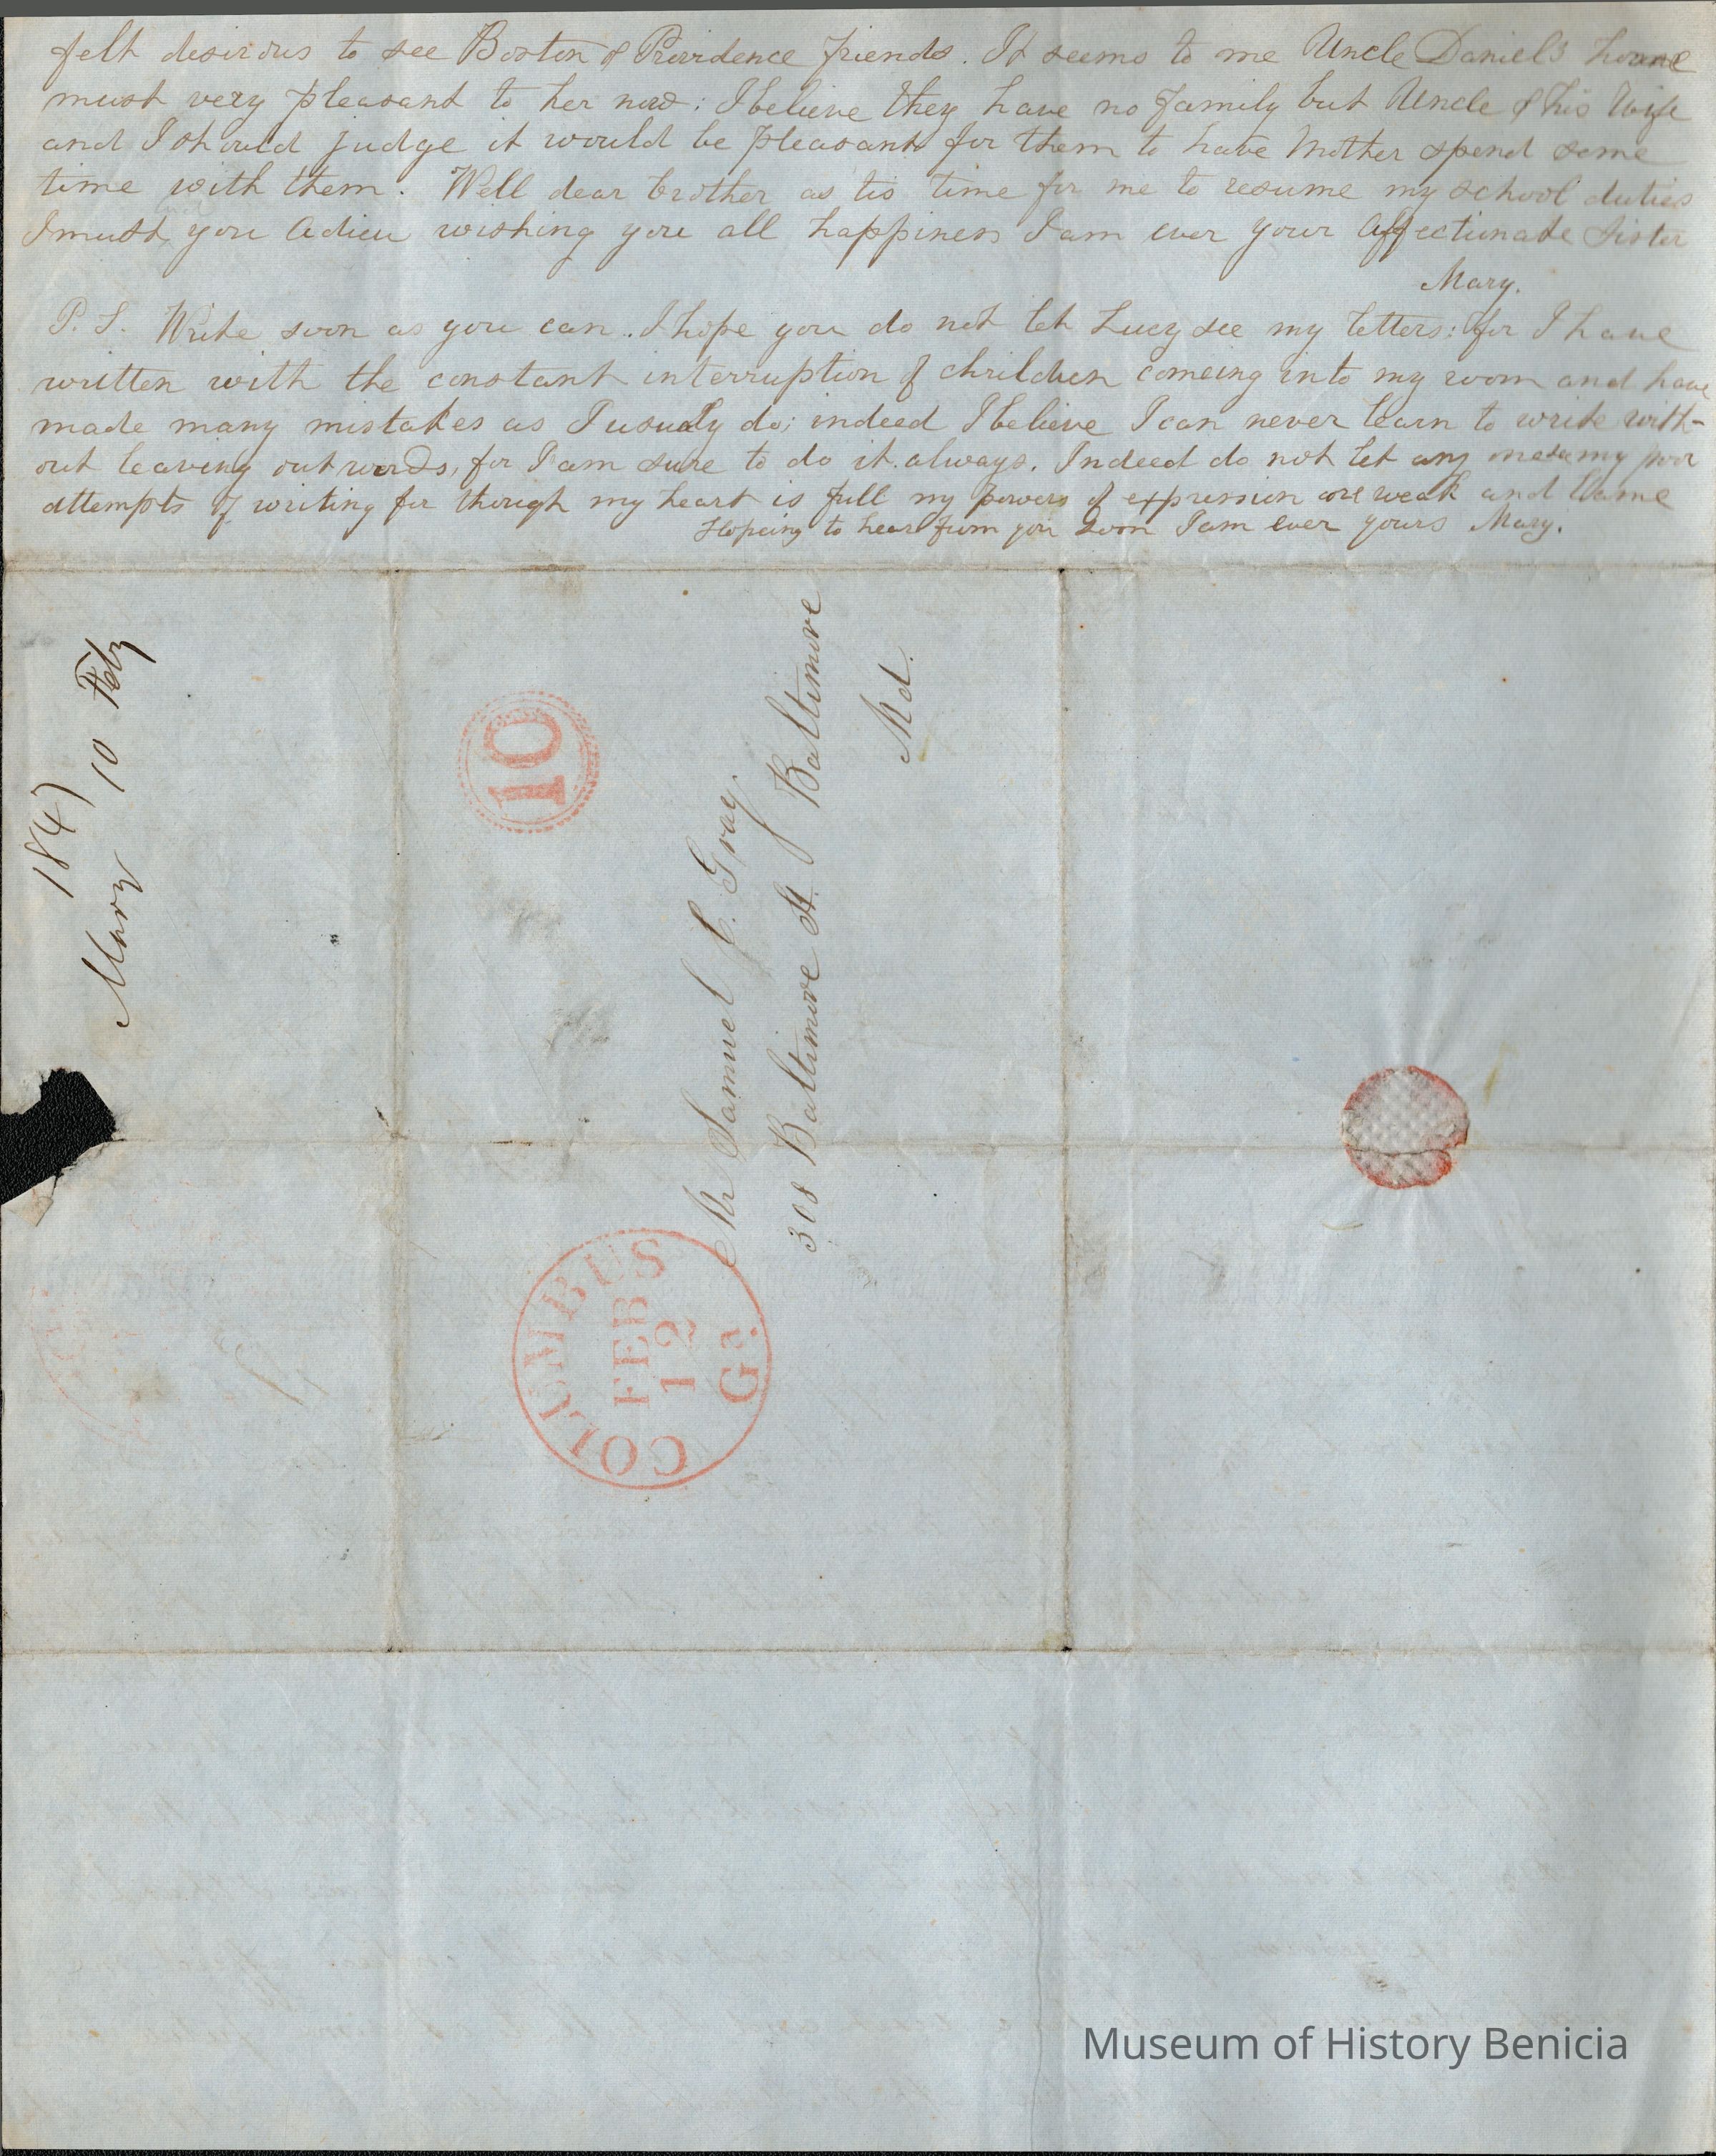 felt desirous to see Boston & Providence friends. It seems to me Uncle Daniels home
must very pleasant to her now; I believe they have no family but Uncle & his Wife
and I should judge it would be pleasant for them to have Mother spend some
time with them. Well dear brother as tis time for me to resume my school duties
I must you Adieu wishing you all happiness I am ever your Affectionate Sister
Mary.
P.S. Write soon as you can. I hope you do not let Lucy see my letters: for I have
written with the constant interruption of children comeing into my room and have
made many mistakes as I usualy do; indeed I believe I can never learn to write with-
out leaving out words, for I am sure to do it always. Indeed do not let any one see my poor
attempts of writing for though my heart is full my powers of expression are weak and lame
Hopeing to hear from you soon I am ever yours Mary.
1847
Mary 10 Feby
10
Mr Samuel C. Gray
308 Baltimore St. Baltimore
Md.
COLUMBUS
FEB
12
Ga.
Museum of History Benicia